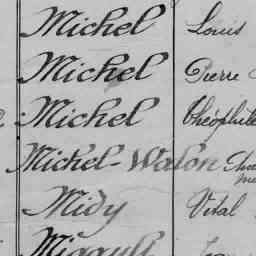 Michel Louis
Michel Pierre
Michel Théophile
Michel-Walon
Midy Vital